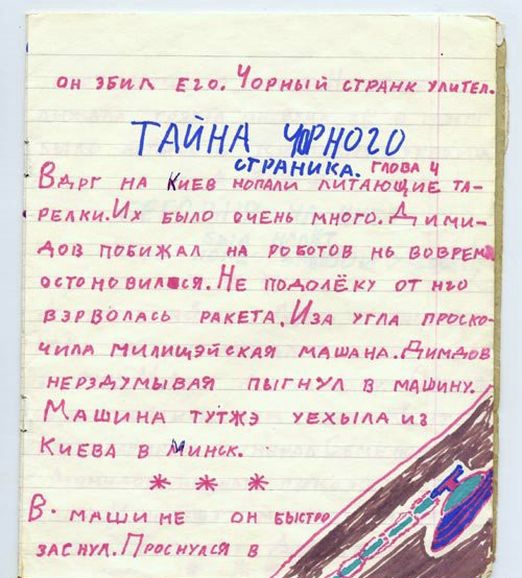 он збил его. Чорный странк улител.
ТАЙНА ЧОРНОГО
СТРАНИКА. ГЛОВА 4
Вдрг на Киев нопали литающие та-
релки. Их было очень много. Дими-
дов побижал на роботов нь воврем
остоновился. Не подолёку от нго
взрволась ракета. Иза угла проско-
чила милищэйская машана. Димдов
нерздумывая пыгнул в машину.
Машина тутжэ уехыла из
Киева в Минск.
* * *
В машине он быстро
заснул. Проснулся в